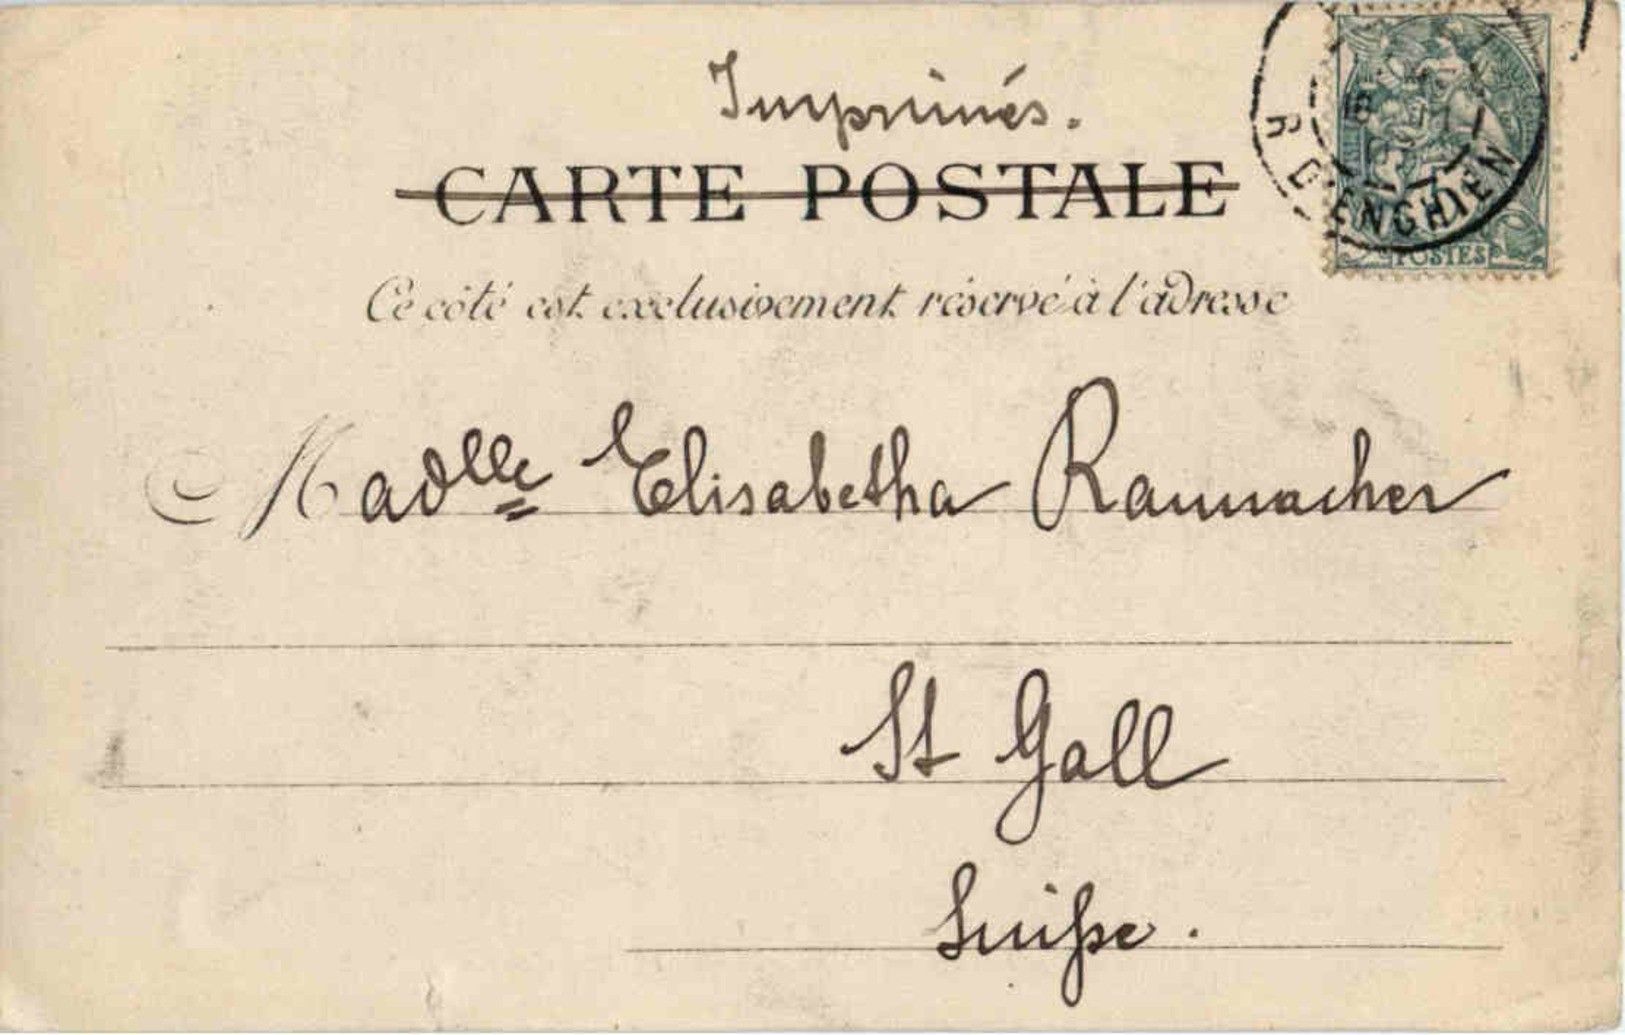 Imprimés.
CARTE POSTALE
Ce côté est exclusivement réservé à l'adresse
R. D'ENGHIEN
POSTES
Madlle Elisabetha Rannacher
St Gall
Suiſse.